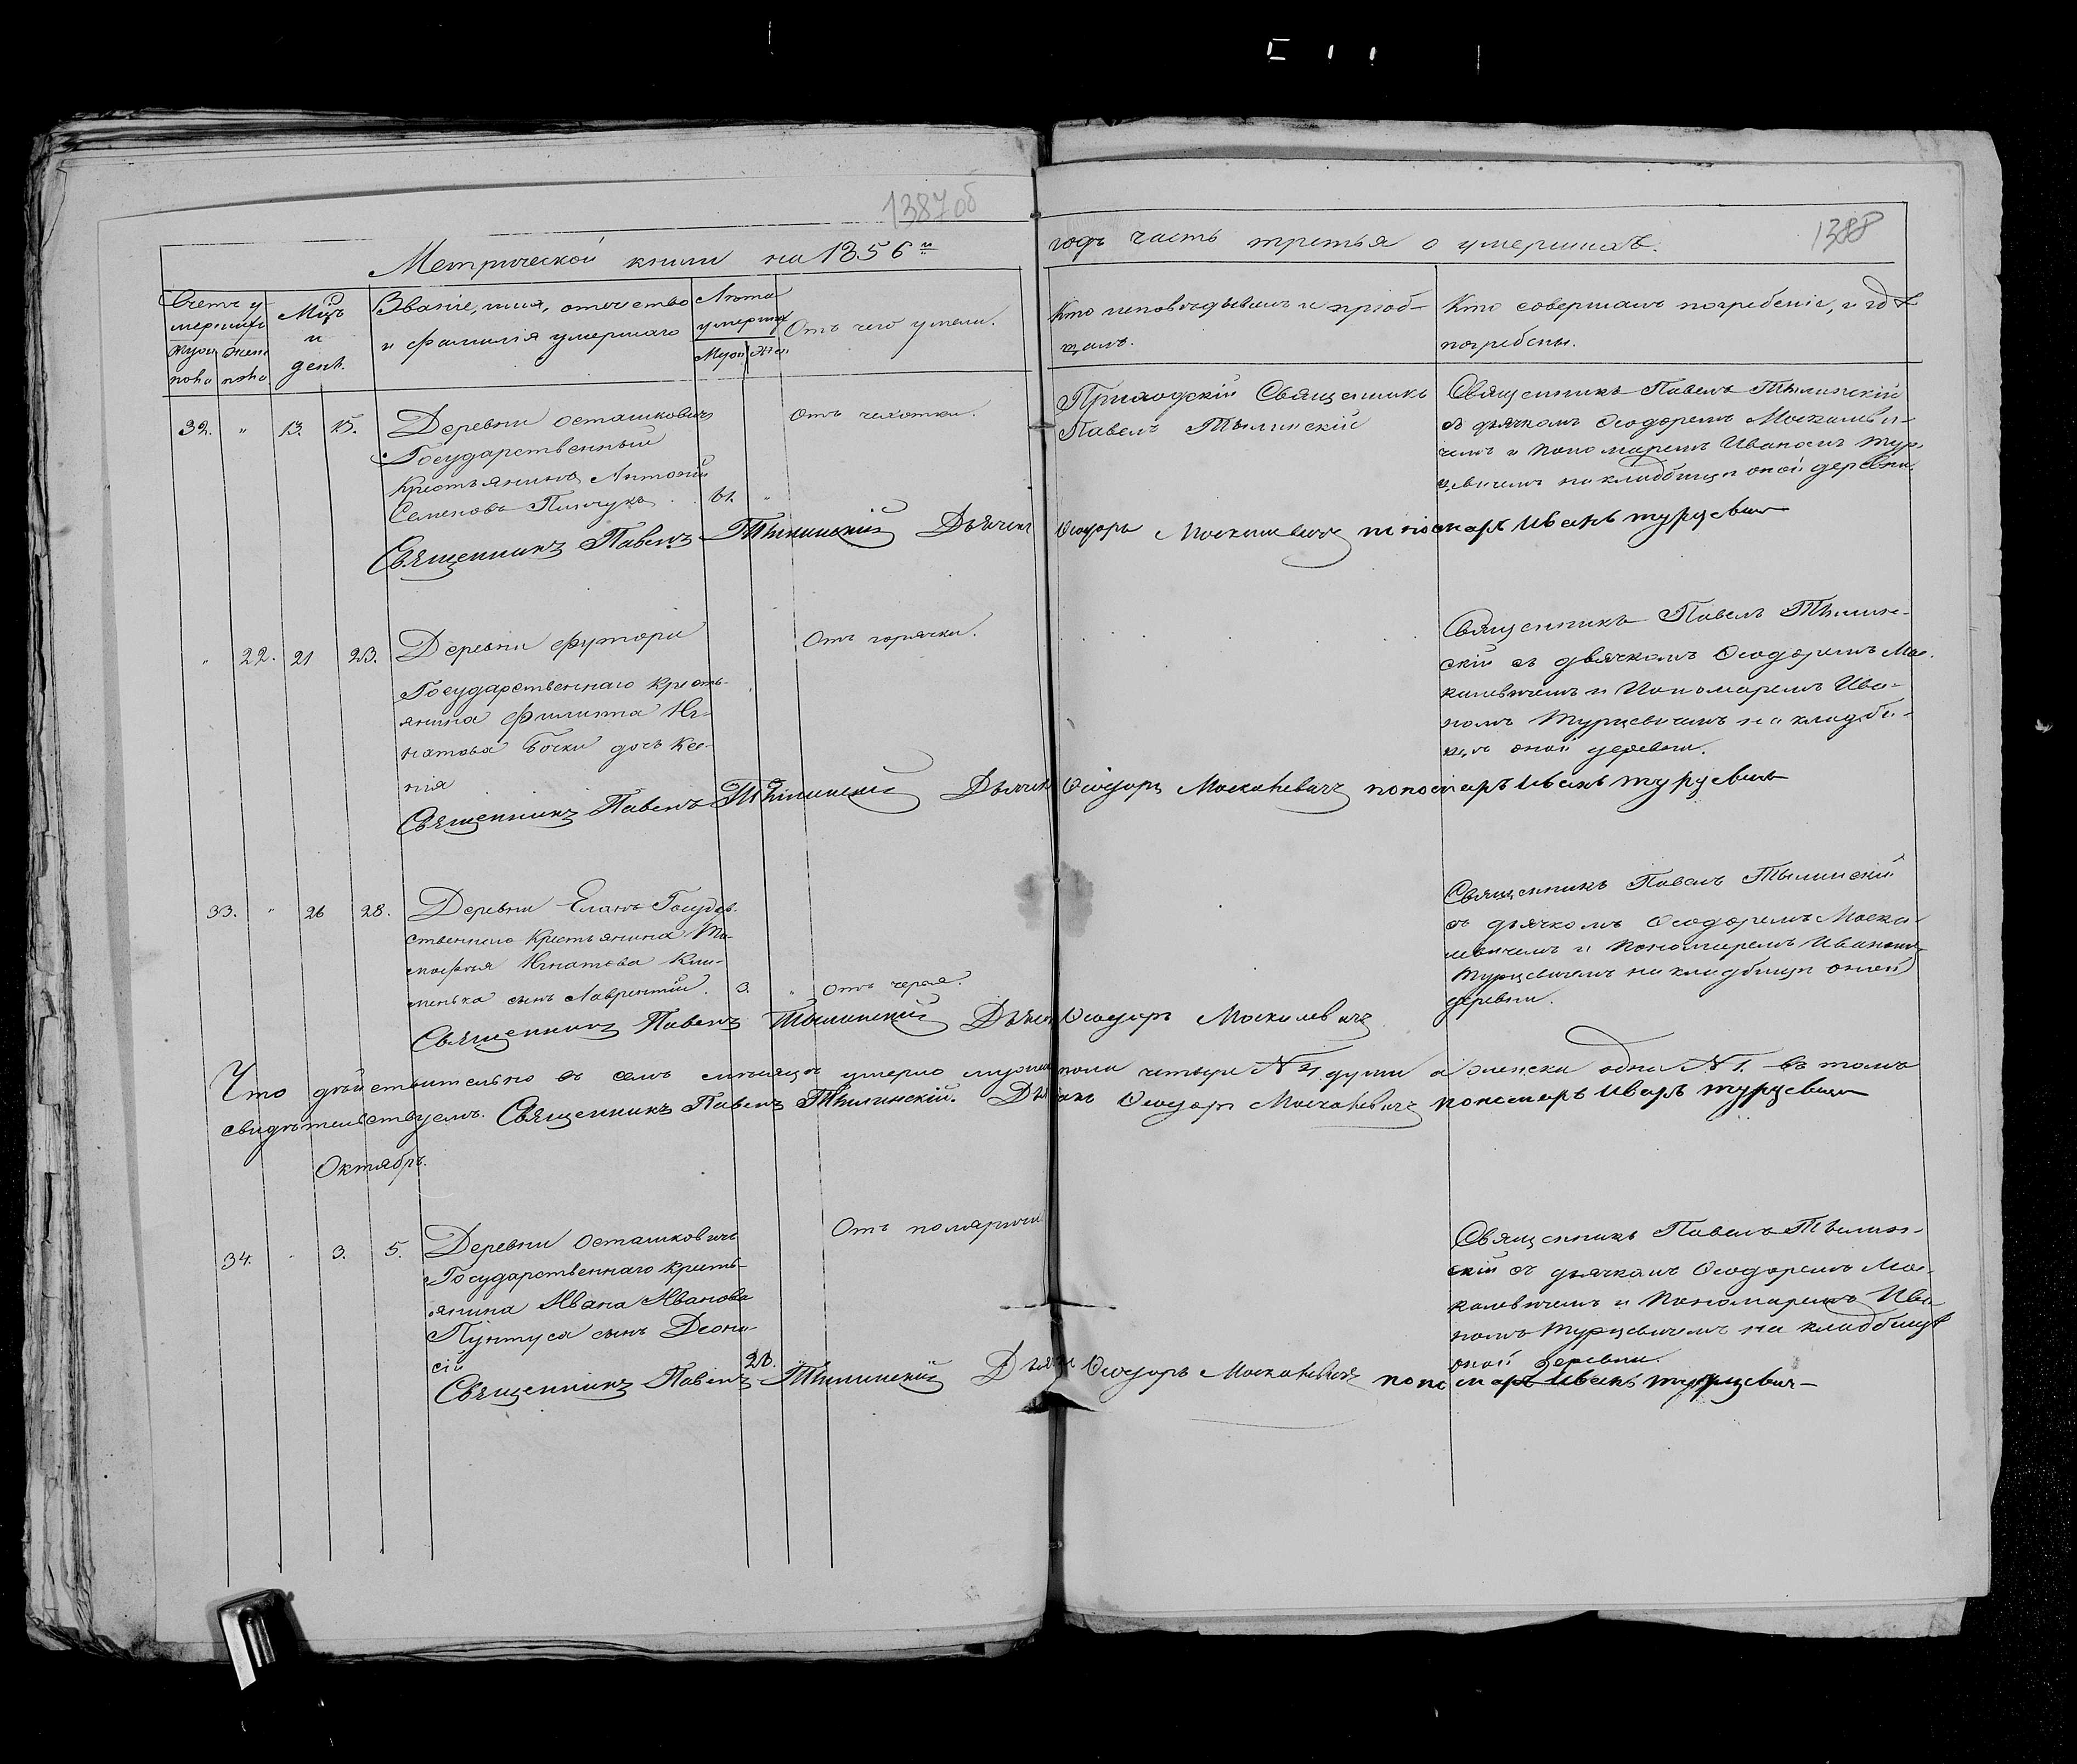 1387об
Метрической книги на 1856й
годъ часть третья о умершихъ.
1388
Счетъ у-
мершихъ
Муж
ска
Жен
ска
Мцъ
и
день.
Званіе, имя, отчество
и фамилія умершаго
Лѣта
умерших
Муж
Жен
Отъ чего умели.
Кто исповѣдывалъ и пріоб-
щалъ.
Кто совершалъ погребеніе, и гдѣ
погребены.
32. " 13. 15.
Деревни Осташковичъ
Государственный
Крестьянинъ Антоній
Семеновъ Пинчукъ
61. "
Отъ чахотки.
Приходскій Священникъ
Павелъ Тылинскій
Священникъ Павелъ Тылинскій
съ дьячкомъ Ѳеодоромъ Москалеви-
чемъ и пономаремъ Иваномъ Тур-
цевичемъ на кладбищѣ оной деревни.
Священникъ Павелъ Тылинскій Дьячекъ Ѳеодоръ Москалевичъ пономарь Иванъ Турцевич
" 22. 21 23.
Деревни Футоры
Государственнаго кресть-
янина Филиппа Иг-
натова Бочки дочь Ксе-
нія
Отъ горячки.
Священникъ Павелъ Тылин-
скій съ дьячкомъ Ѳеодоромъ Мос-
калевичемъ и Пономаремъ Ива-
номъ Турцевичемъ на кладби-
щѣ оной деревни.
Священникъ Павелъ Тылинскій Дьячекъ Ѳеодоръ Москалевичъ пономарь Иванъ Турцевичъ
33. " 26 28.
Деревни Еланъ Государ-
ственнаго Крестьянина Ти-
мофѣя Игнатова Кли-
менька сынъ Лаврентій.
3. "
Отъ черья.
Священникъ Павелъ Тылинскій
съ дьячкомъ Ѳеодоромъ Моска-
левичемъ и Пономаремъ Иваномъ
Турцевичемъ на кладбищѣ оной
деревни.
Священникъ Павелъ Тылинскій Дьячекъ Ѳеодоръ Москалевичъ
Что дѣйствительно въ семъ мѣсяцѣ умерло мужеска пола четыре № 4. души а женска одна № 1. въ томъ
свидѣтельствуемъ. Священникъ Павелъ Тылинскій. Дьячекъ Ѳеодоръ Москалевичъ пономарь Иванъ Турцевичъ
Октябрь.
34. " 3. 5.
Деревни Осташковичъ
Государственнаго кресть-
янина Ивана Иванова
Пунтуса сынъ Деони-
сій
28.
Отъ
Священникъ Павелъ Тылин-
скій съ дьячкомъ Ѳеодоромъ Мос-
калевичемъ и Пономаремъ Ива-
номъ Турцевичемъ на кладбищѣ
оной деревни.
Священникъ Павелъ Тылинскій Дьячекъ Ѳеодоръ Москалевичъ пономарь Иванъ Турцевич